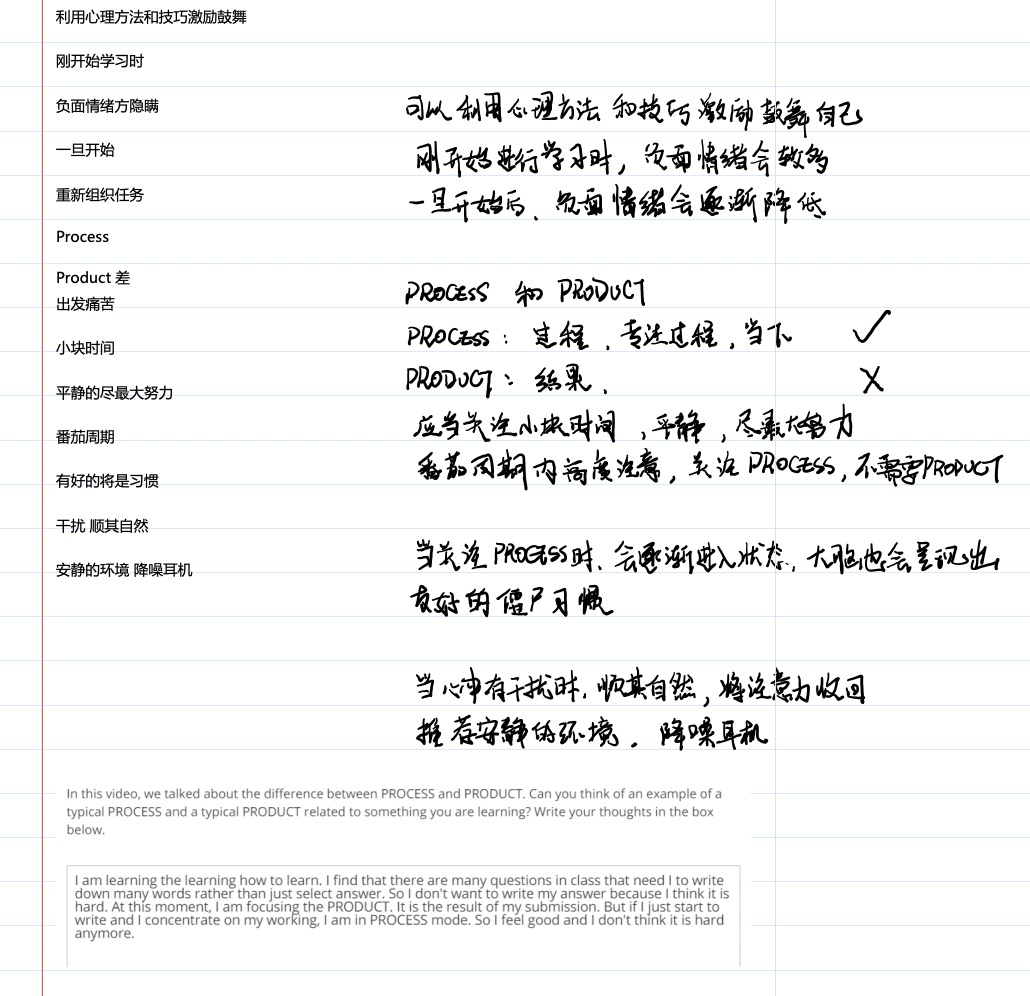 利用心理方法和技巧激励鼓舞
刚开始学习时
负面情绪方隐瞒
一旦开始
重新组织任务
Process
Product 差
出发痛苦
小块时间
平静的尽最大努力
番茄周期
有好的将是习惯
干扰 顺其自然
安静的环境 降噪耳机
可以利用心理方法和技巧激励鼓舞自己
刚开始进行学习时，负面情绪会较多
一旦开始后、负面情绪会逐渐降低
PROCESS 和 PRODUCT
PROCESS：过程、专注过程，当下 ✓
PRODUCT：结果、 X
应当关注小块时间，平静，尽最大努力
番茄周期内高度注意，关注PROCESS，不需要PRODUCT
当关注PROCESS时、会逐渐进入状态、大脑也会呈现出
友好的僵尸习惯
当心中有干扰时、顺其自然，将注意力收回
推荐安静的环境、降噪耳机
In this video, we talked about the difference between PROCESS and PRODUCT. Can you think of an example of a
typical PROCESS and a typical PRODUCT related to something you are learning? Write your thoughts in the box
below.
I am learning the learning how to learn. I find that there are many questions in class that need I to write
down many words rather than just select answer. So I don't want to write my answer because I think it is
hard. At this moment, I am focusing the PRODUCT. It is the result of my submission. But if I just start to
write and I concentrate on my working, I am in PROCESS mode. So I feel good and I don't think it is hard
anymore.